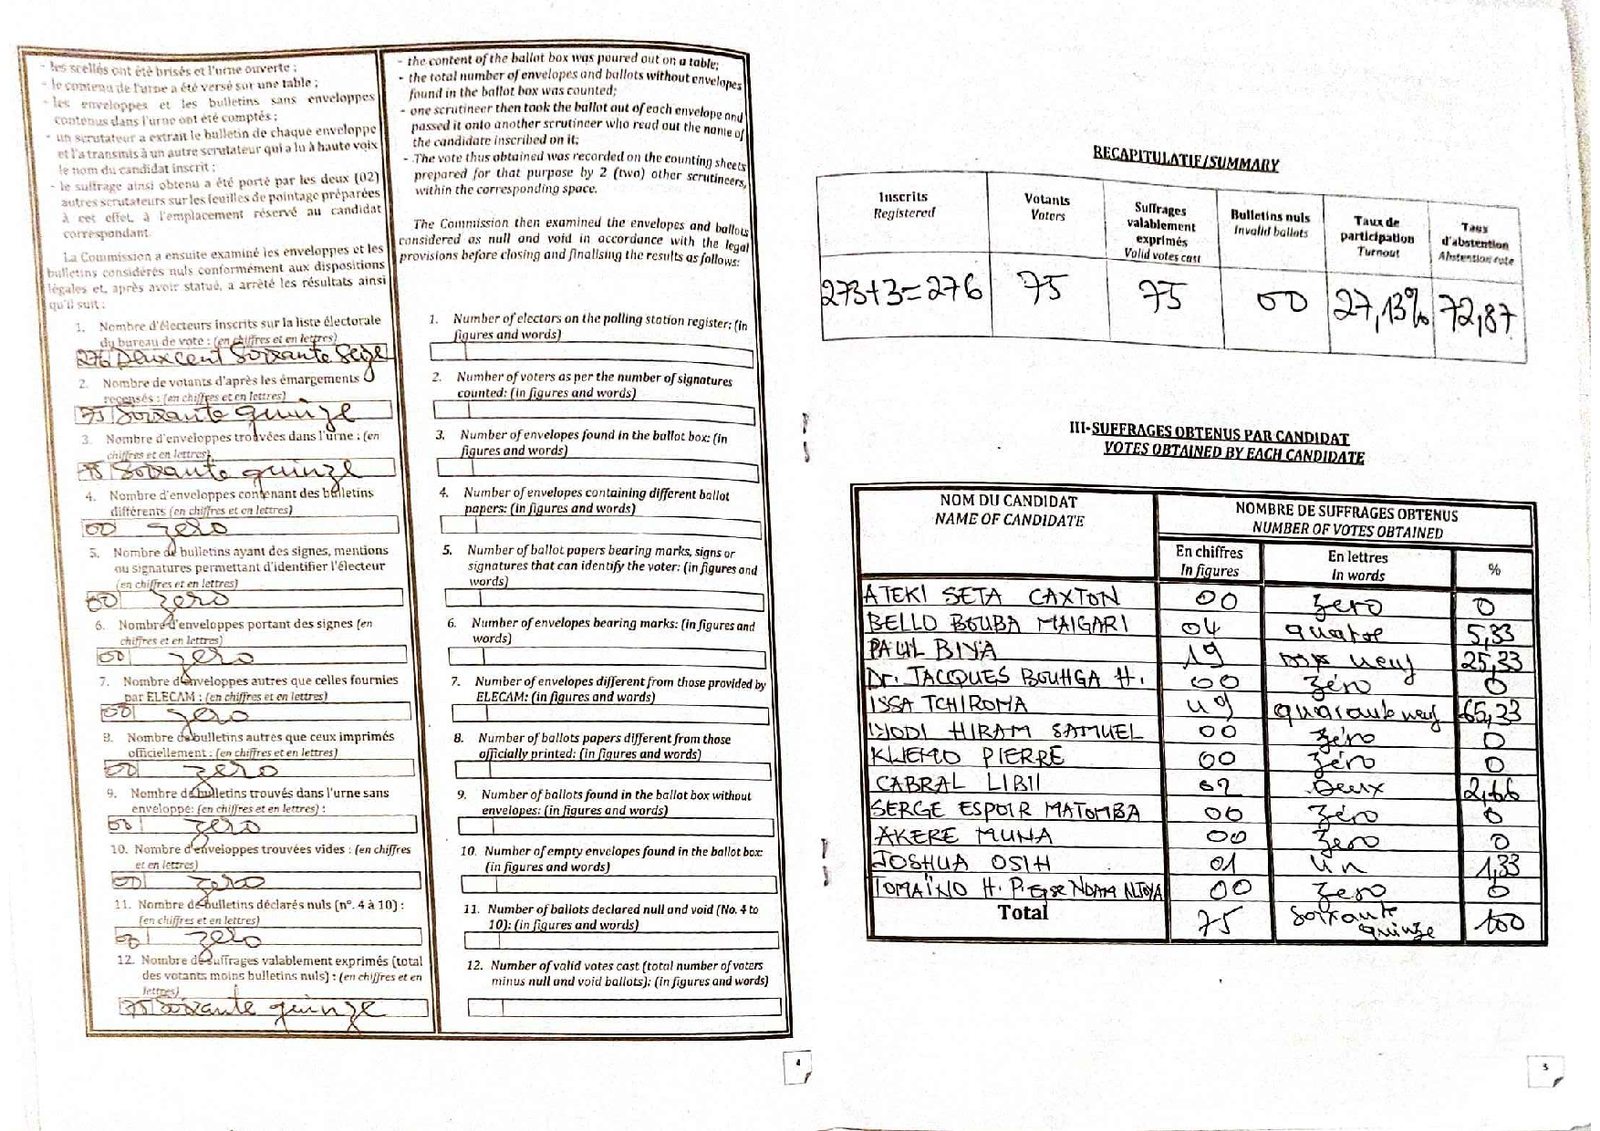 - les scellés ont été brisés et l'urne ouverte ;
- le contenu de l'urne a été versé sur une table ;
- les enveloppes et les bulletins sans enveloppes
contenus dans l'urne ont été comptés ;
- un scrutateur a extrait le bulletin de chaque enveloppe
et l'a transmis à un autre scrutateur qui a lu à haute voix
le nom du candidat inscrit ;
- le suffrage ainsi obtenu a été porté par les deux (02)
autres scrutateurs sur les feuilles de pointage préparées
à cet effet, à l'emplacement réservé au candidat
correspondant.
La Commission a ensuite examiné les enveloppes et les
bulletins considérés nuls conformément aux dispositions
légales et, après avoir statué, a arrêté les résultats ainsi
qu'il suit :
1. Nombre d'électeurs inscrits sur la liste électorale
du bureau de vote : (en chiffres et en lettres)
276 Deux cent Soixante Seize
2. Nombre de votants d'après les émargements
recensés : (en chiffres et en lettres)
75 Soixante quinze
3. Nombre d'enveloppes trouvées dans l'urne : (en
chiffres et en lettres)
75 Soixante quinze
4. Nombre d'enveloppes contenant des bulletins
différents (en chiffres et en lettres)
00 zero
5. Nombre de bulletins ayant des signes, mentions
ou signatures permettant d'identifier l'électeur
(en chiffres et en lettres)
00 zero
6. Nombre d'enveloppes portant des signes (en
chiffres et en lettres)
00 zero
7. Nombre d'enveloppes autres que celles fournies
par ELECAM : (en chiffres et en lettres)
00 zero
8. Nombre de bulletins autres que ceux imprimés
officiellement : (en chiffres et en lettres)
00 zero
9. Nombre de bulletins trouvés dans l'urne sans
enveloppe: (en chiffres et en lettres) :
00 zero
10. Nombre d'enveloppes trouvées vides : (en chiffres
et en lettres)
00 zero
11. Nombre de bulletins déclarés nuls (n°. 4 à 10) :
(en chiffres et en lettres)
00 zero
12. Nombre de suffrages valablement exprimés (total
des votants moins bulletins nuls) : (en chiffres et en
lettres)
75 Soixante quinze
- the content of the ballot box was poured out on a table;
- the total number of envelopes and ballots without envelopes
found in the ballot box was counted;
- one scrutineer then took the ballot out of each envelope and
passed it onto another scrutineer who read out the name of
the candidate inscribed on it;
- The vote thus obtained was recorded on the counting sheets
prepared for that purpose by 2 (two) other scrutineers,
within the corresponding space.
The Commission then examined the envelopes and ballots
considered as null and void in accordance with the legal
provisions before closing and finalising the results as follows:
1. Number of electors on the polling station register: (in
figures and words)
2. Number of voters as per the number of signatures
counted: (in figures and words)
3. Number of envelopes found in the ballot box: (in
figures and words)
4. Number of envelopes containing different ballot
papers: (in figures and words)
5. Number of ballot papers bearing marks, signs or
signatures that can identify the voter: (in figures and
words)
6. Number of envelopes bearing marks: (in figures and
words)
7. Number of envelopes different from those provided by
ELECAM: (in figures and words)
8. Number of ballots papers different from those
officially printed: (in figures and words)
9. Number of ballots found in the ballot box without
envelopes: (in figures and words)
10. Number of empty envelopes found in the ballot box:
(in figures and words)
11. Number of ballots declared null and void (No. 4 to
10): (in figures and words)
12. Number of valid votes cast (total number of voters
minus null and void ballots): (in figures and words)
4
RECAPITULATIF/SUMMARY
Inscrits Registered Votants Voters Suffrages valablement exprimés Valid votes cast Bulletins nuls Invalid ballots Taux de participation Turnout Taux d'abstention Abstention rate
273+3=276 75 75 00 27,13% 72,87
III-SUFFRAGES OBTENUS PAR CANDIDAT
VOTES OBTAINED BY EACH CANDIDATE
NOM DU CANDIDAT NOMBRE DE SUFFRAGES OBTENUS
NAME OF CANDIDATE NUMBER OF VOTES OBTAINED
En chiffres En lettres %
In figures In words
ATEKI SETA CAXTON 00 Zero 0
BELLO BOUBA MAIGARI 04 quatre 5,33
PAUL BIYA 19 neuf 25,33
Dr. JACQUES BOUHGA H. 00 Zéro 0
ISSA TCHIROMA 49 quarante neuf 65,33
HIRAM SAMUEL 00 Zéro 0
PIERRE 00 Zéro 0
CABRAL LIBII 02 Deux 2,66
SERGE ESPOIR MATOMBA 00 Zéro 0
AKERE MUNA 00 Zero 0
JOSHUA OSIH 01 Un 1,33
TOMAÏNO H. 00 Zero 0
Total 75 Soixante quinze 100
5